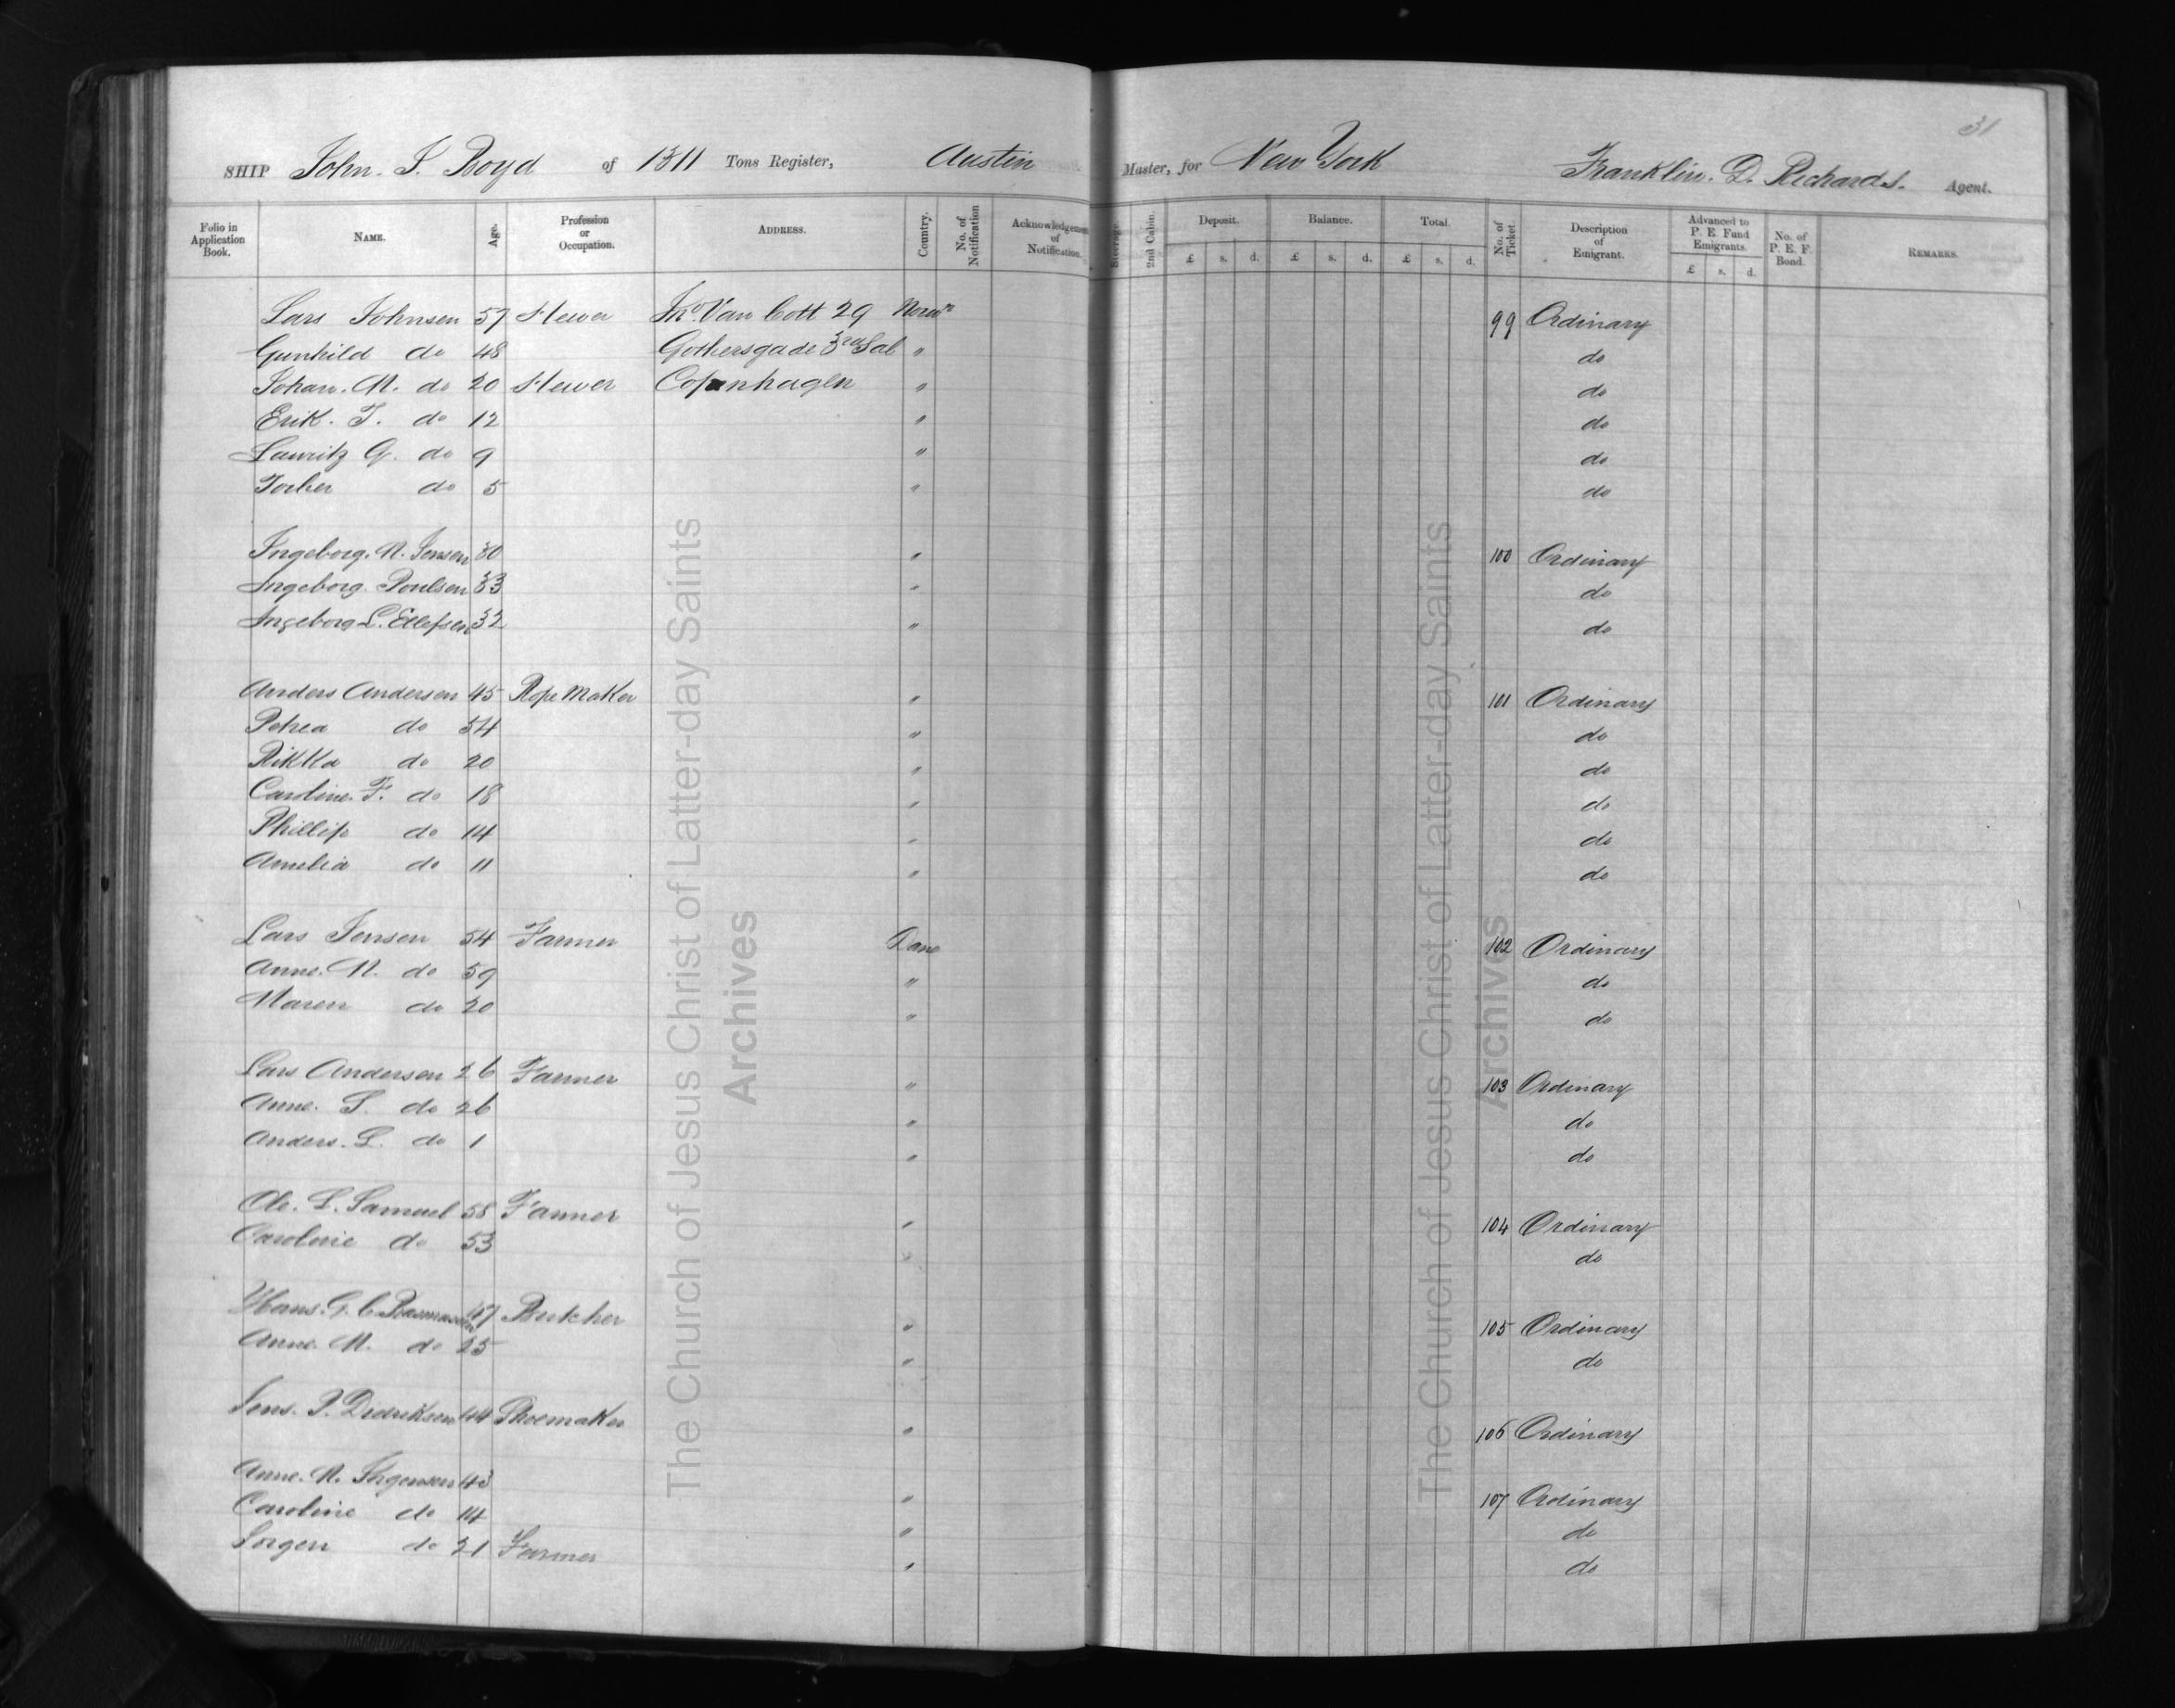 31
SHIP John. J. Boyd of 1311 Tons Register, Austin Master, for New York Franklin. D. Richards. Agent.
Folio in Application Book. NAME. Age. Profession or Occupation. ADDRESS. Country. No. of Notification Acknowledgement of Notification. Steerage 2nd Cabin. Deposit. £ s. d. Balance. £ s. d. Total. £ s. d. No. of Ticket. Description of Emigrant. Advanced to P. E. Fund Emigrants. £ s. d. No. of P. E. F. Bond. REMARKS.
Lars Johnsen 57 Hewer Jno. Van Cott 29 Norwn 99 Ordinary
Gunhild do 48 Gothersgade 3rd Sal " do
Johan. M. do 20 Hewer Copenhagen " do
Erik. J. do 12 " do
Lauritz G. do 9 " do
do 5 " do
Ingeborg. N. Jensen 30 " 100 Ordinary
Ingeborg. Poulsen 33 " do
Ingeborg L. Ellefsen 32 " do
Anders Andersen 45 Rope Maker " 101 Ordinary
Petrea do 54 " do
Rikka do 20 " do
Caroline. F. do 18 " do
Phillip do 14 " do
Amelia do 11 " do
Lars Jensen 54 Farmer Dane 102 Ordinary
Anne. M. do 59 " do
Maren do 20 " do
Lars Andersen 26 Farmer " 103 Ordinary
Anne. S. do 26 " do
Anders. L. do 1 " do
Ole. L. Samuel 58 Farmer " 104 Ordinary
Caroline do 53 " do
Hans. G. C. Rasmussen 47 Butcher " 105 Ordinary
Anne. M. do 25 " do
Jens. P. Dedriksen 44 Shoemaker " 106 Ordinary
Anne. M. Jorgensen 43 " 107 Ordinary
Caroline do 14 " do
Jorgen do 21 Farmer " do
The Church of Jesus Christ of Latter-day Saints
Archives
The Church of Jesus Christ of Latter-day Saints
Archives